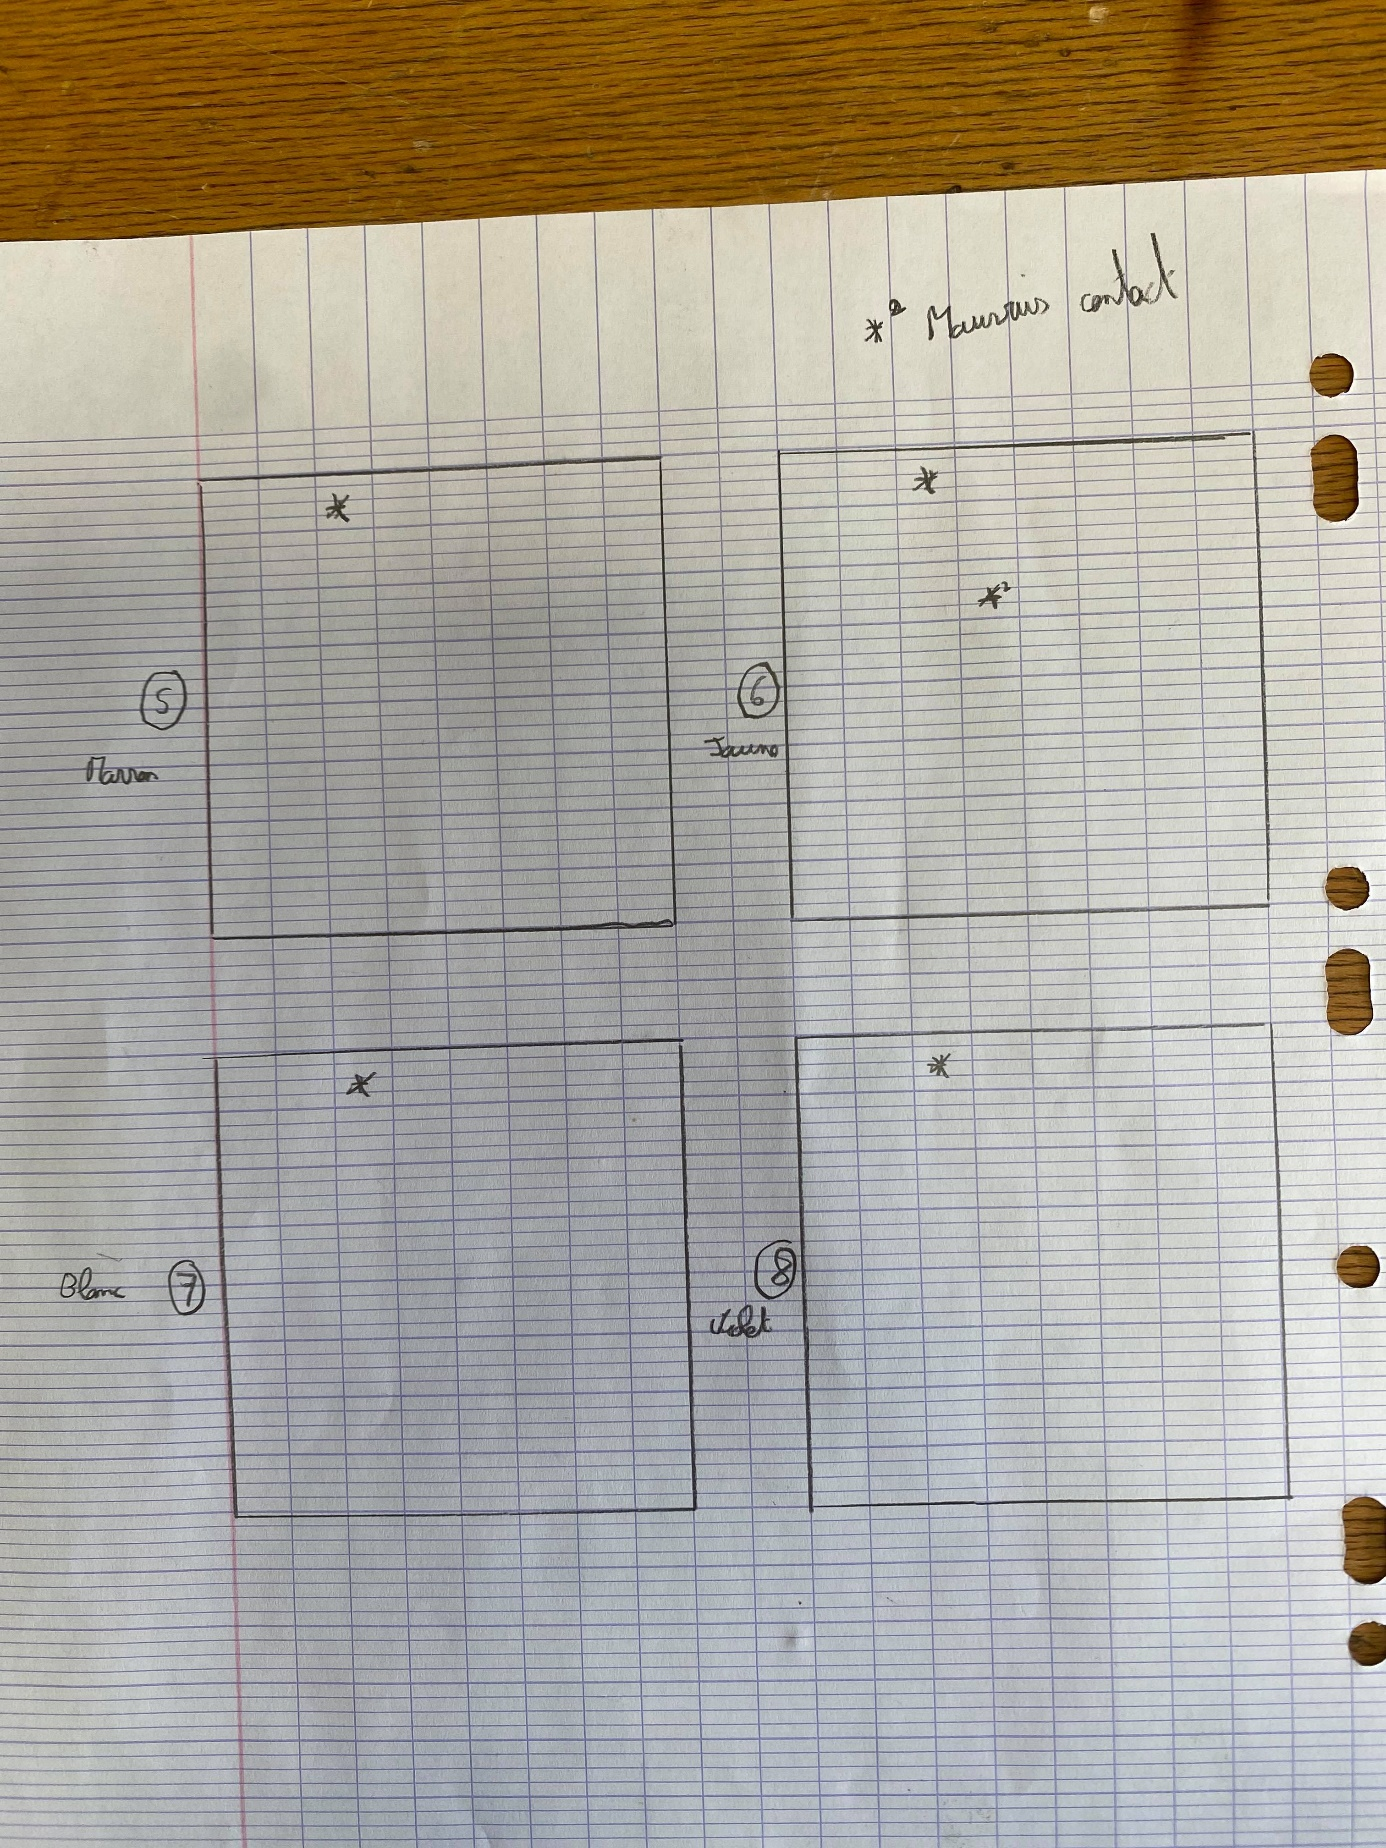 *² Mauvais contact
*
*
*²
5
6
Marron
Jaune
*
*
Blanc 7
8
Violet